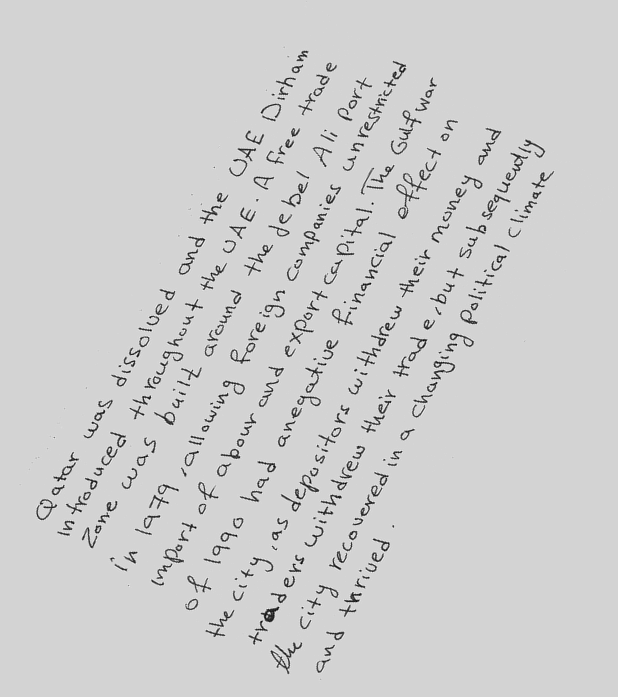 Qatar was dissolved and the UAE Dirham
introduced throughout the UAE. A free trade
Zone was built around the Jebel Ali Port
in 1979, allowing foreign companies unrestricted
import of abour and export capital. The Gulf war
of 1990 had anegative financial effect on
the city, as depositors withdrew their money and
traders withdrew their trade, but subsequently
the city recovered in a changing political climate
and thrived.